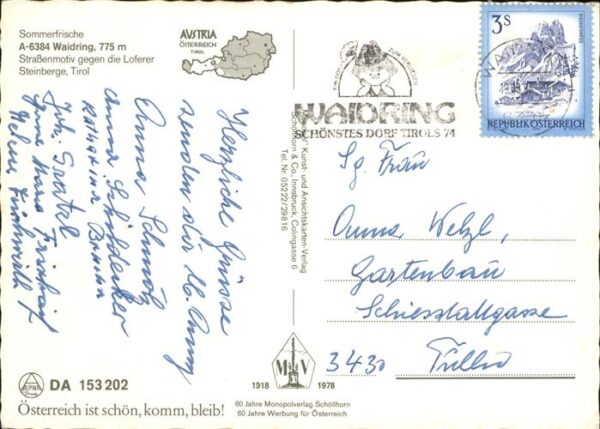 Sommerfrische
A-6384 Waidring, 775 m
Straßenmotiv gegen die Loferer
Steinberge, Tirol
AVSTRIA
ÖSTERREICH
TIROL
ZUM VERLIEBEN
WAIDRING
SCHÖNSTES DORF TIROLS 74
3S
REPUBLIK ÖSTERREICH
Herzliche Grüsse
senden dir lb. Anny
Anna
Anna
Katharina
Kunst- und Ansichtskarten-Verlag
Schöllhorn & Co., Innsbruck, Colingasse 6
Tel. Nr. 05222/29816
Sg. Frau
Anna Welzl,
Gartenbau
Schiesstattgasse
3430 Tulln
MV
1918 1978
DA 153 202
Österreich ist schön, komm, bleib!
60 Jahre Monopolverlag Schöllhorn
60 Jahre Werbung für Österreich